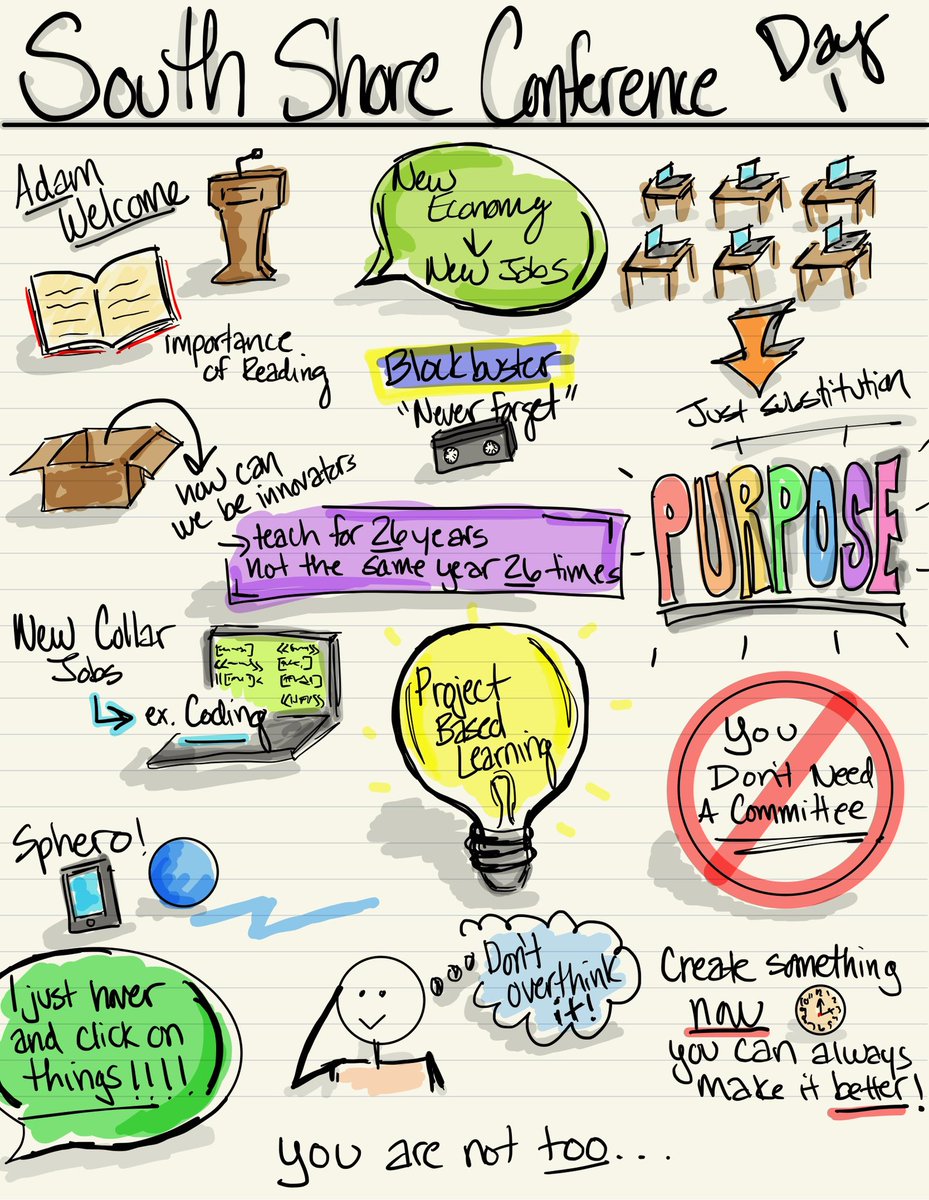 South Shore Conference Day 1
Adam
Welcome
New
Economy
New Jobs
importance
of Reading
Blockbuster
"Never forget"
Just substitution
how can
we be innovators
PURPOSE
teach for 26 years
not the same year 26 times
New Collar
Jobs
ex. Coding
Project
Based
Learning
You
Don't Need
A Committee
Sphero!
I just hover
and click on
things!!!!
Don't
overthink
it!
Create something
now
you can always
make it better!
you are not too...